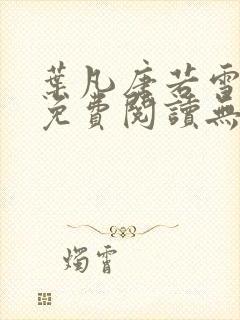 葉凡唐若雪
免費閱讀無
燭霄